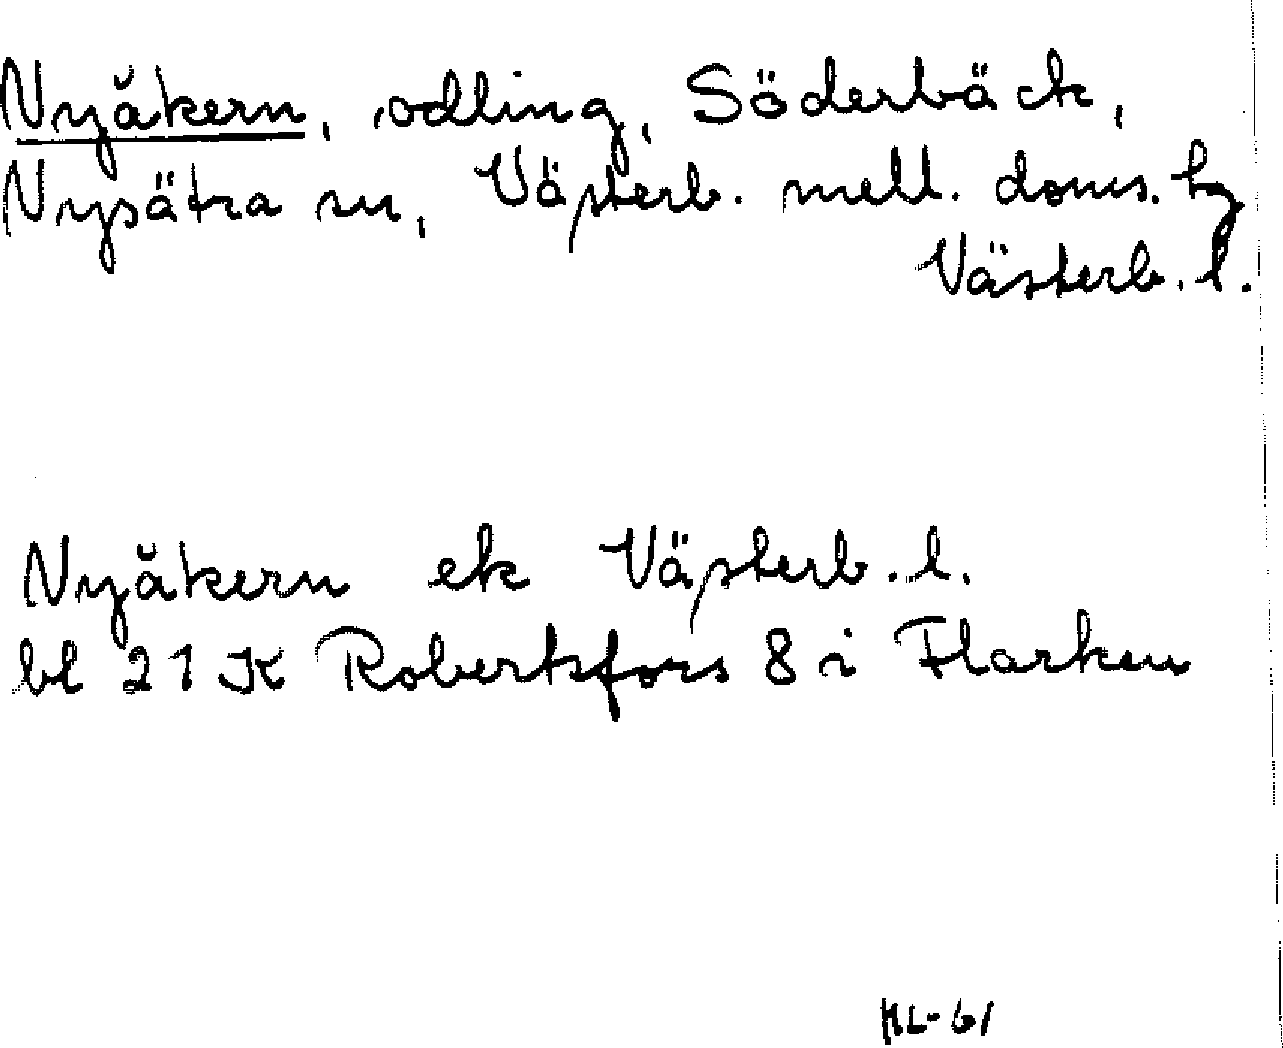 Nyåkern, odling, Söderbäck,
Nysätra sn, Västerb. mell. doms. hg
Västerb. l.
Nyåkern ek Västerb. l.
bl 21 K Robertsfors 8 i Flarken
HL-61